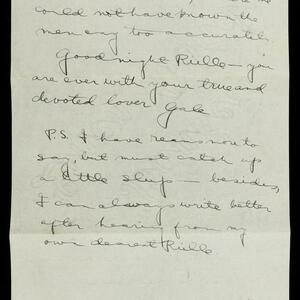 could not have known the
men any too accurately.
Good night Rielle — you
are ever with your true and
devoted lover Gale
P.S. I have reams more to
say, but must catch up
a little sleep — besides,
I can always write better
after hearing from my
own dearest Rielle